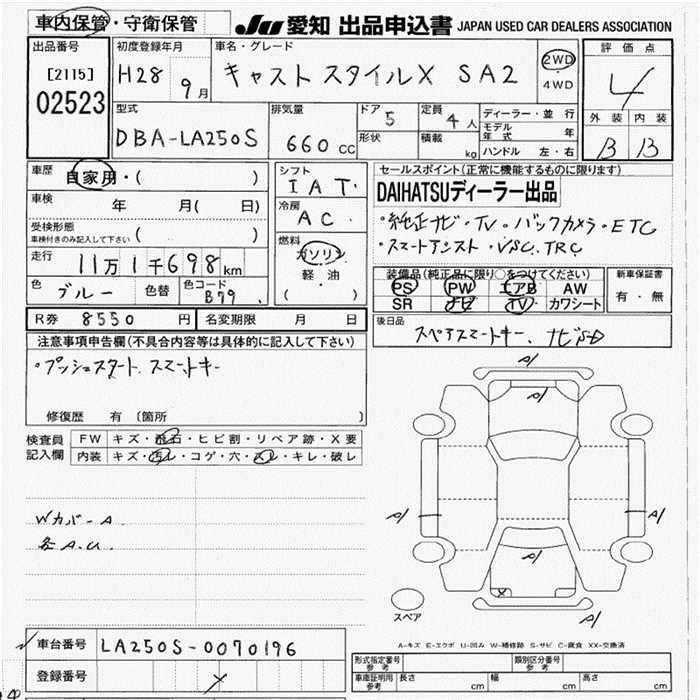 車内保管・守衛保管
JU 愛知 出品申込書 JAPAN USED CAR DEALERS ASSOCIATION
出品番号
[2115]
02523
初度登録年月
H28 9月
車名・グレード
キャスト スタイルX SA2
2WD
・
4WD
評価点
4
外装 内装
B B
型式
DBA-LA250S
排気量
660 CC
ドア 5
形状
定員 4人
積載 kg
ディーラー・並行
モデル年式 年
ハンドル 左・右
車歴 自家用・( )
車検 年 月( 日)
受検形態
車検付きのみ記入して下さい ( )
走行 11万1千698km
色 ブルー 色替 色コード B79
シフト
IAT
冷房
AC
燃料
ガソリン
軽・油
( )
セールスポイント(正常に機能するものに限ります)
DAIHATSUディーラー出品
・純正ナビ・TV・バックカメラ・ETC
・スマートアシスト・VSC.TRC
装備品(純正品に限り○をつけてください)
PS PW エアB AW
SR ナビ TV カワシート
新車保証書
有・無
R券 8550円 名変期限 月 日
後日品
スペアスマートキー、ナビSD
注意事項申告欄(不具合内容等は具体的に記入して下さい)
・プッシュスタート スマートキー
修復歴 有 〔箇所 〕
検査員記入欄
FW キズ・飛石・ヒビ割・リペア跡・X要
内装 キズ・汚レ・コゲ・穴・スレ・キレ・破レ
Wカバ-A
各A.U.
A1
A1
A1
A1
A1
X
A1
スペア
A-キズ E-エクボ U-凹み W-補修跡 S-サビ C-腐食 XX-交換済
車台番号 LA250S-0070196
登録番号
型式指定番号 参考
類別区分番号 参考
車庫証明用 参考 長さ cm 幅 cm 高さ cm